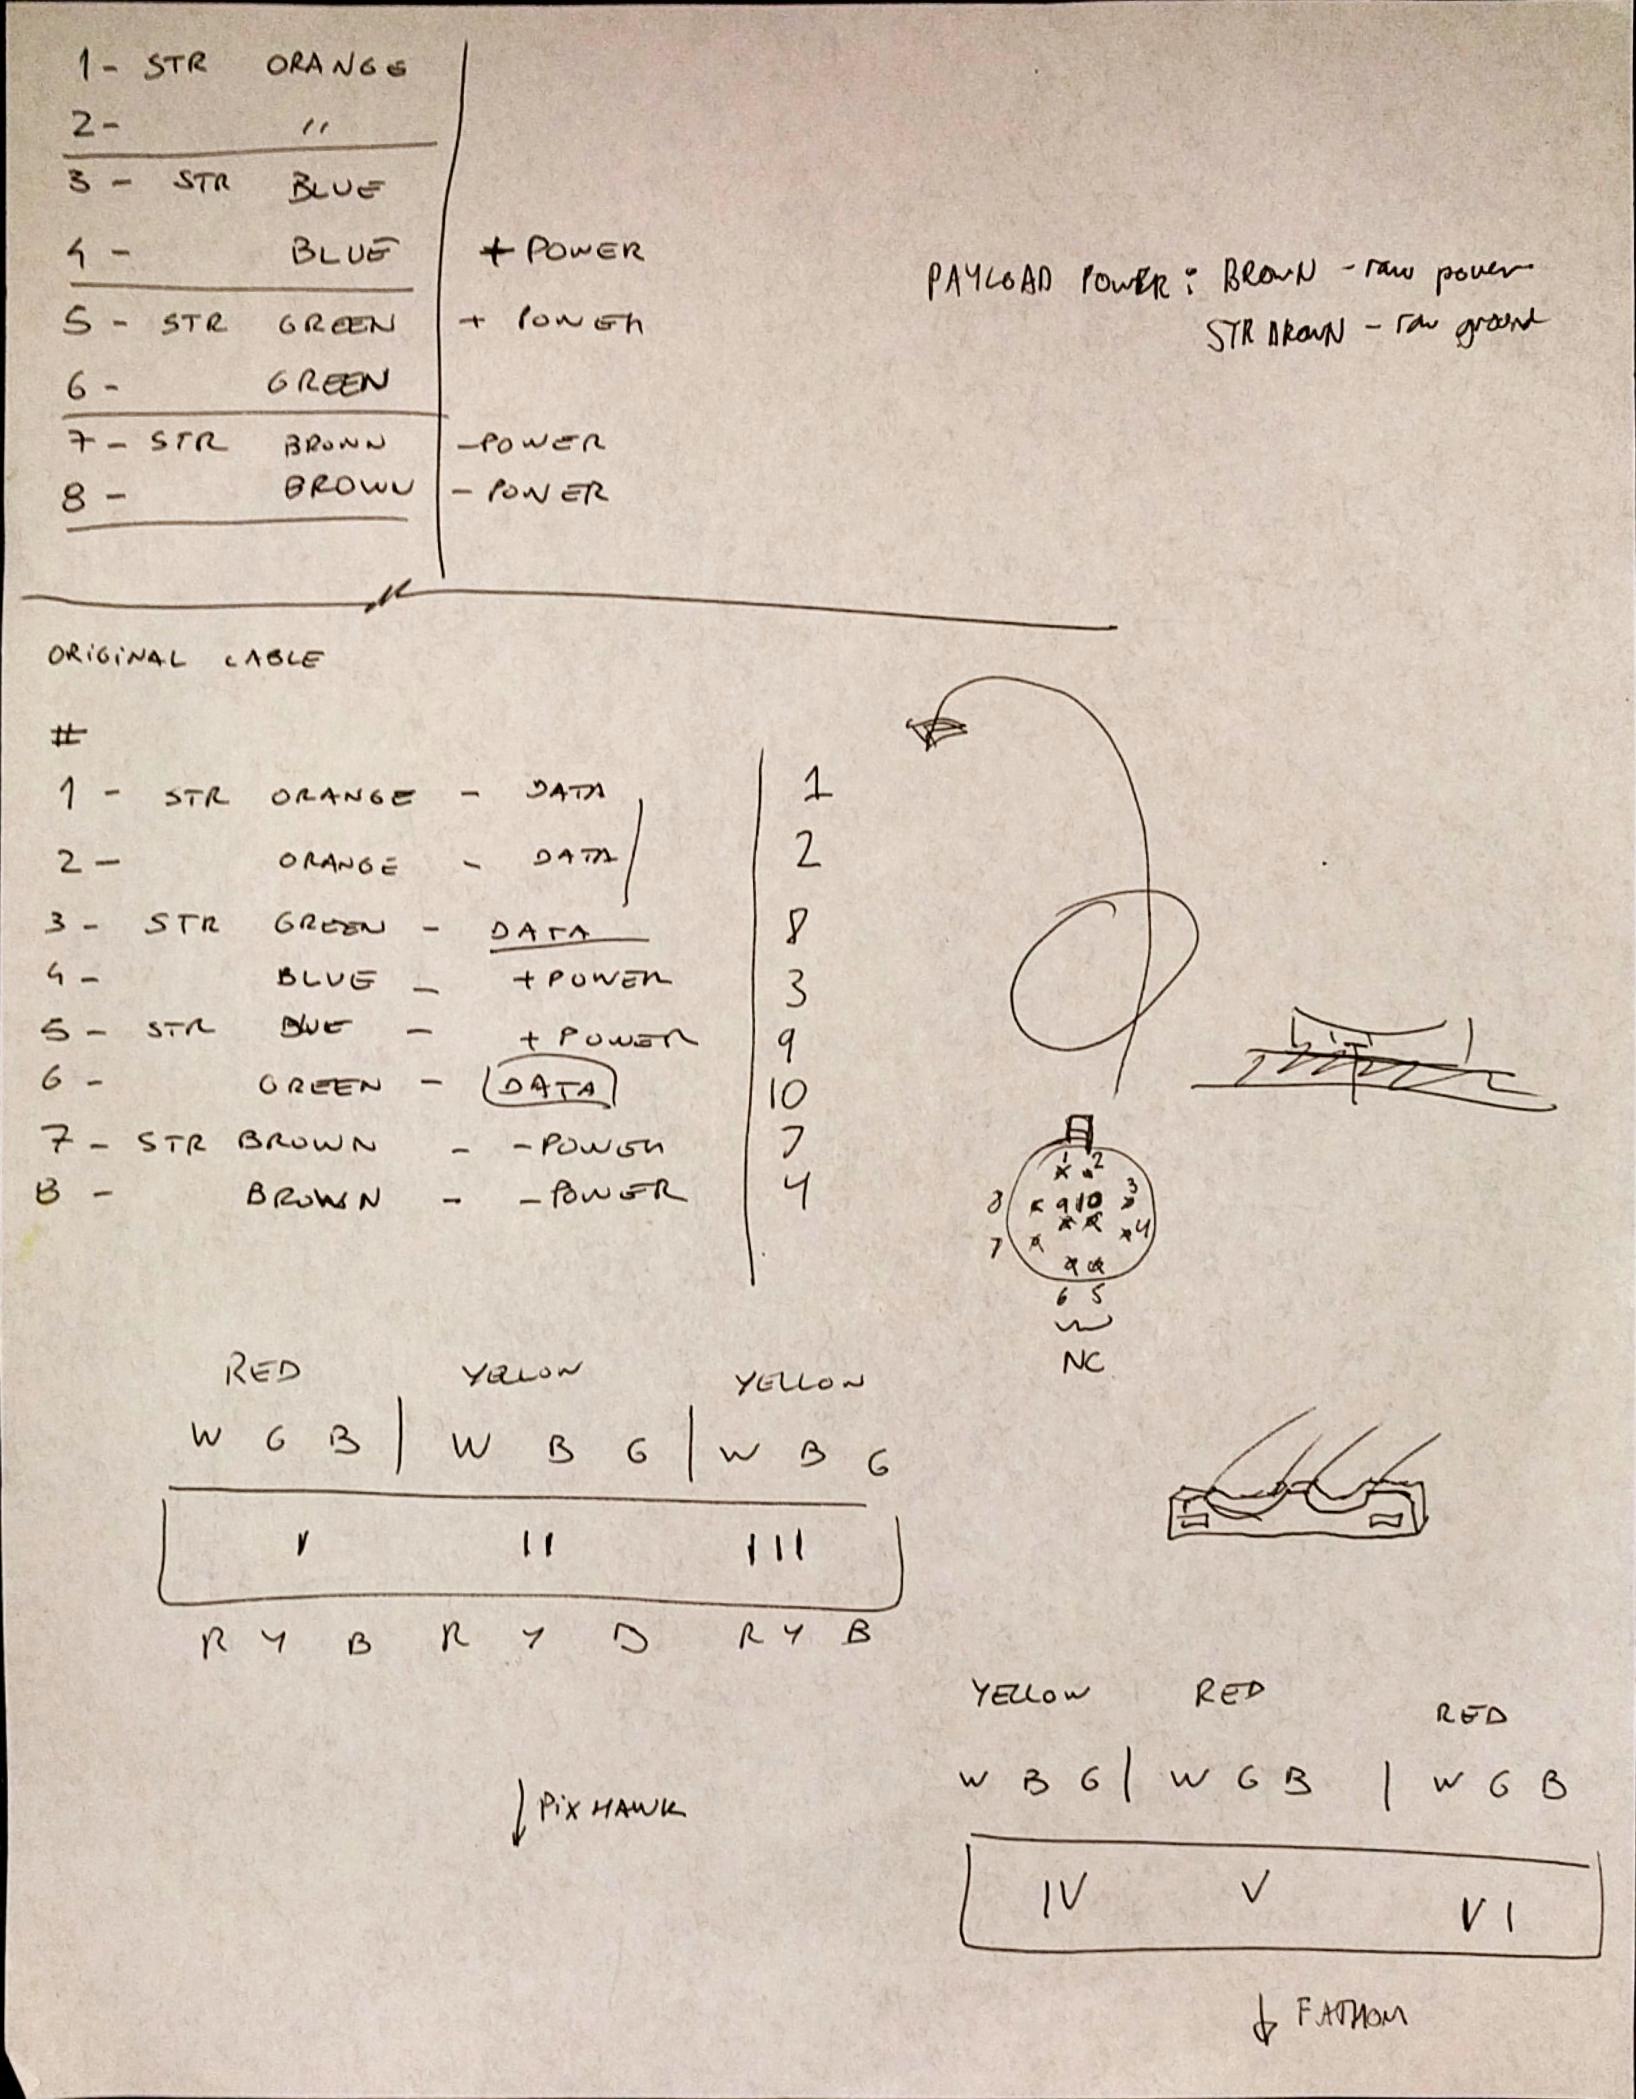 1 - STR ORANGE
2 - "
3 - STR BLUE
4 - BLUE + POWER
5 - STR GREEN + POWER
6 - GREEN
7 - STR BROWN - POWER
8 - BROWN - POWER
PAYLOAD POWER : BROWN - raw power
STR BROWN - raw ground
ORIGINAL CABLE
#
1 - STR ORANGE - DATA 1
2 - ORANGE - DATA 2
3 - STR GREEN - DATA 8
4 - BLUE - + POWER 3
5 - STR BLUE - + POWER 9
6 - GREEN - DATA 10
7 - STR BROWN - - POWER 7
8 - BROWN - - POWER 4
1 2
8 9 10 3
7 4
6 5
NC
RED YELLOW YELLOW
W G B | W B G | W B G
I II III
R Y B R Y B R Y B
↓ PIXHAWK
YELLOW RED RED
W B G | W G B | W G B
IV V VI
↓ FATHOM